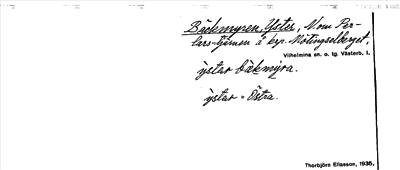 Bäckmyren, Yster, N om Per-
lars-tjärnen å krp. Nötingselberget,
Vilhelmina sn. o. tg. Västerb. l.
ỳstar bäkmýra.
ỳstar = Östra.
Thorbjörn Eliasson, 1935.